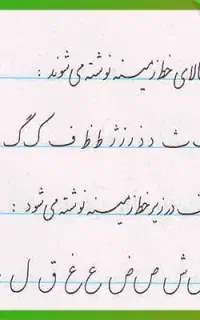 بالای خط زمینه نوشته می‌شوند :
ث د ذ ر ز ژ ط ظ ف ک گ
در زیر خط زمینه نوشته می‌شود :
ش ص ض ع غ ق ل